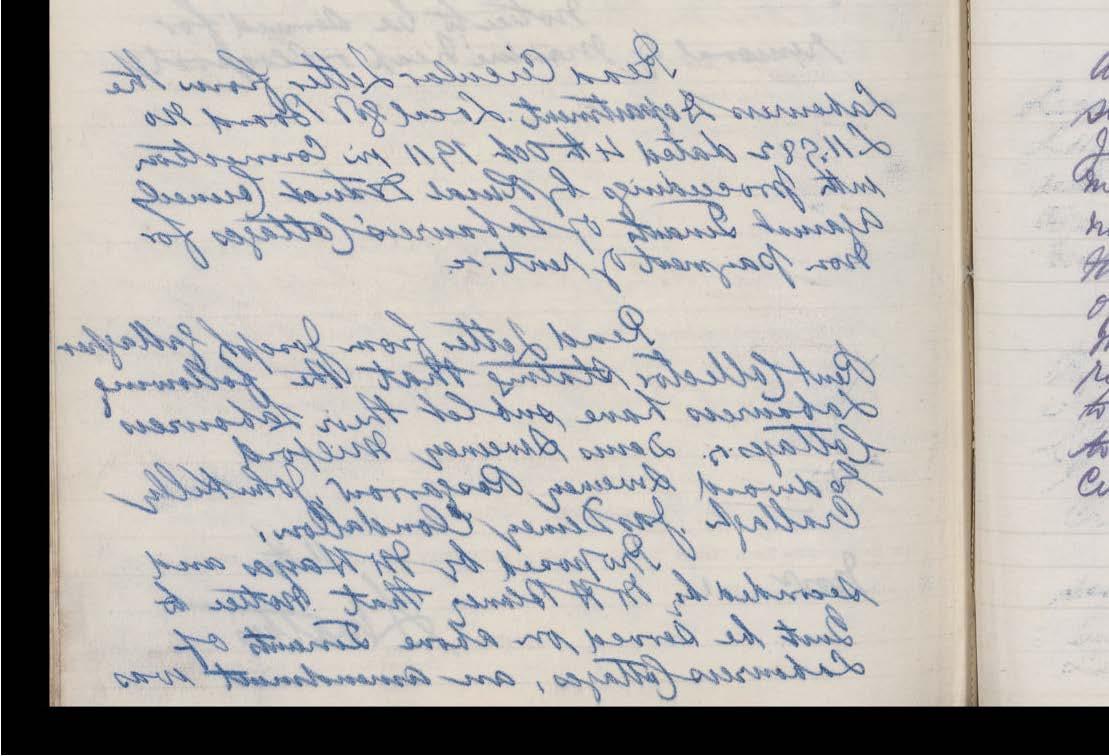 Read Circular Letter from the
Labourers Department Local Gt Board No
dated 4th Oct 1911 in Connection
with proceedings by Rural District Councils
against Tenants of Labourers Cottages for
non payment of rent. &c
Read Letter from Joseph Gallagher
Rent Collector, stating that the following
Labourers have sublet their Labourers
Cottages. Sweeney Milford
Edward Sweeney Rosgarrow, John Kelly
Jas Deeney Clondallon.
Proposed by Mr Hayes and
seconded by Mr that Notice to
Quit be served on above Tenants of
Labourers Cottages, an amendment was